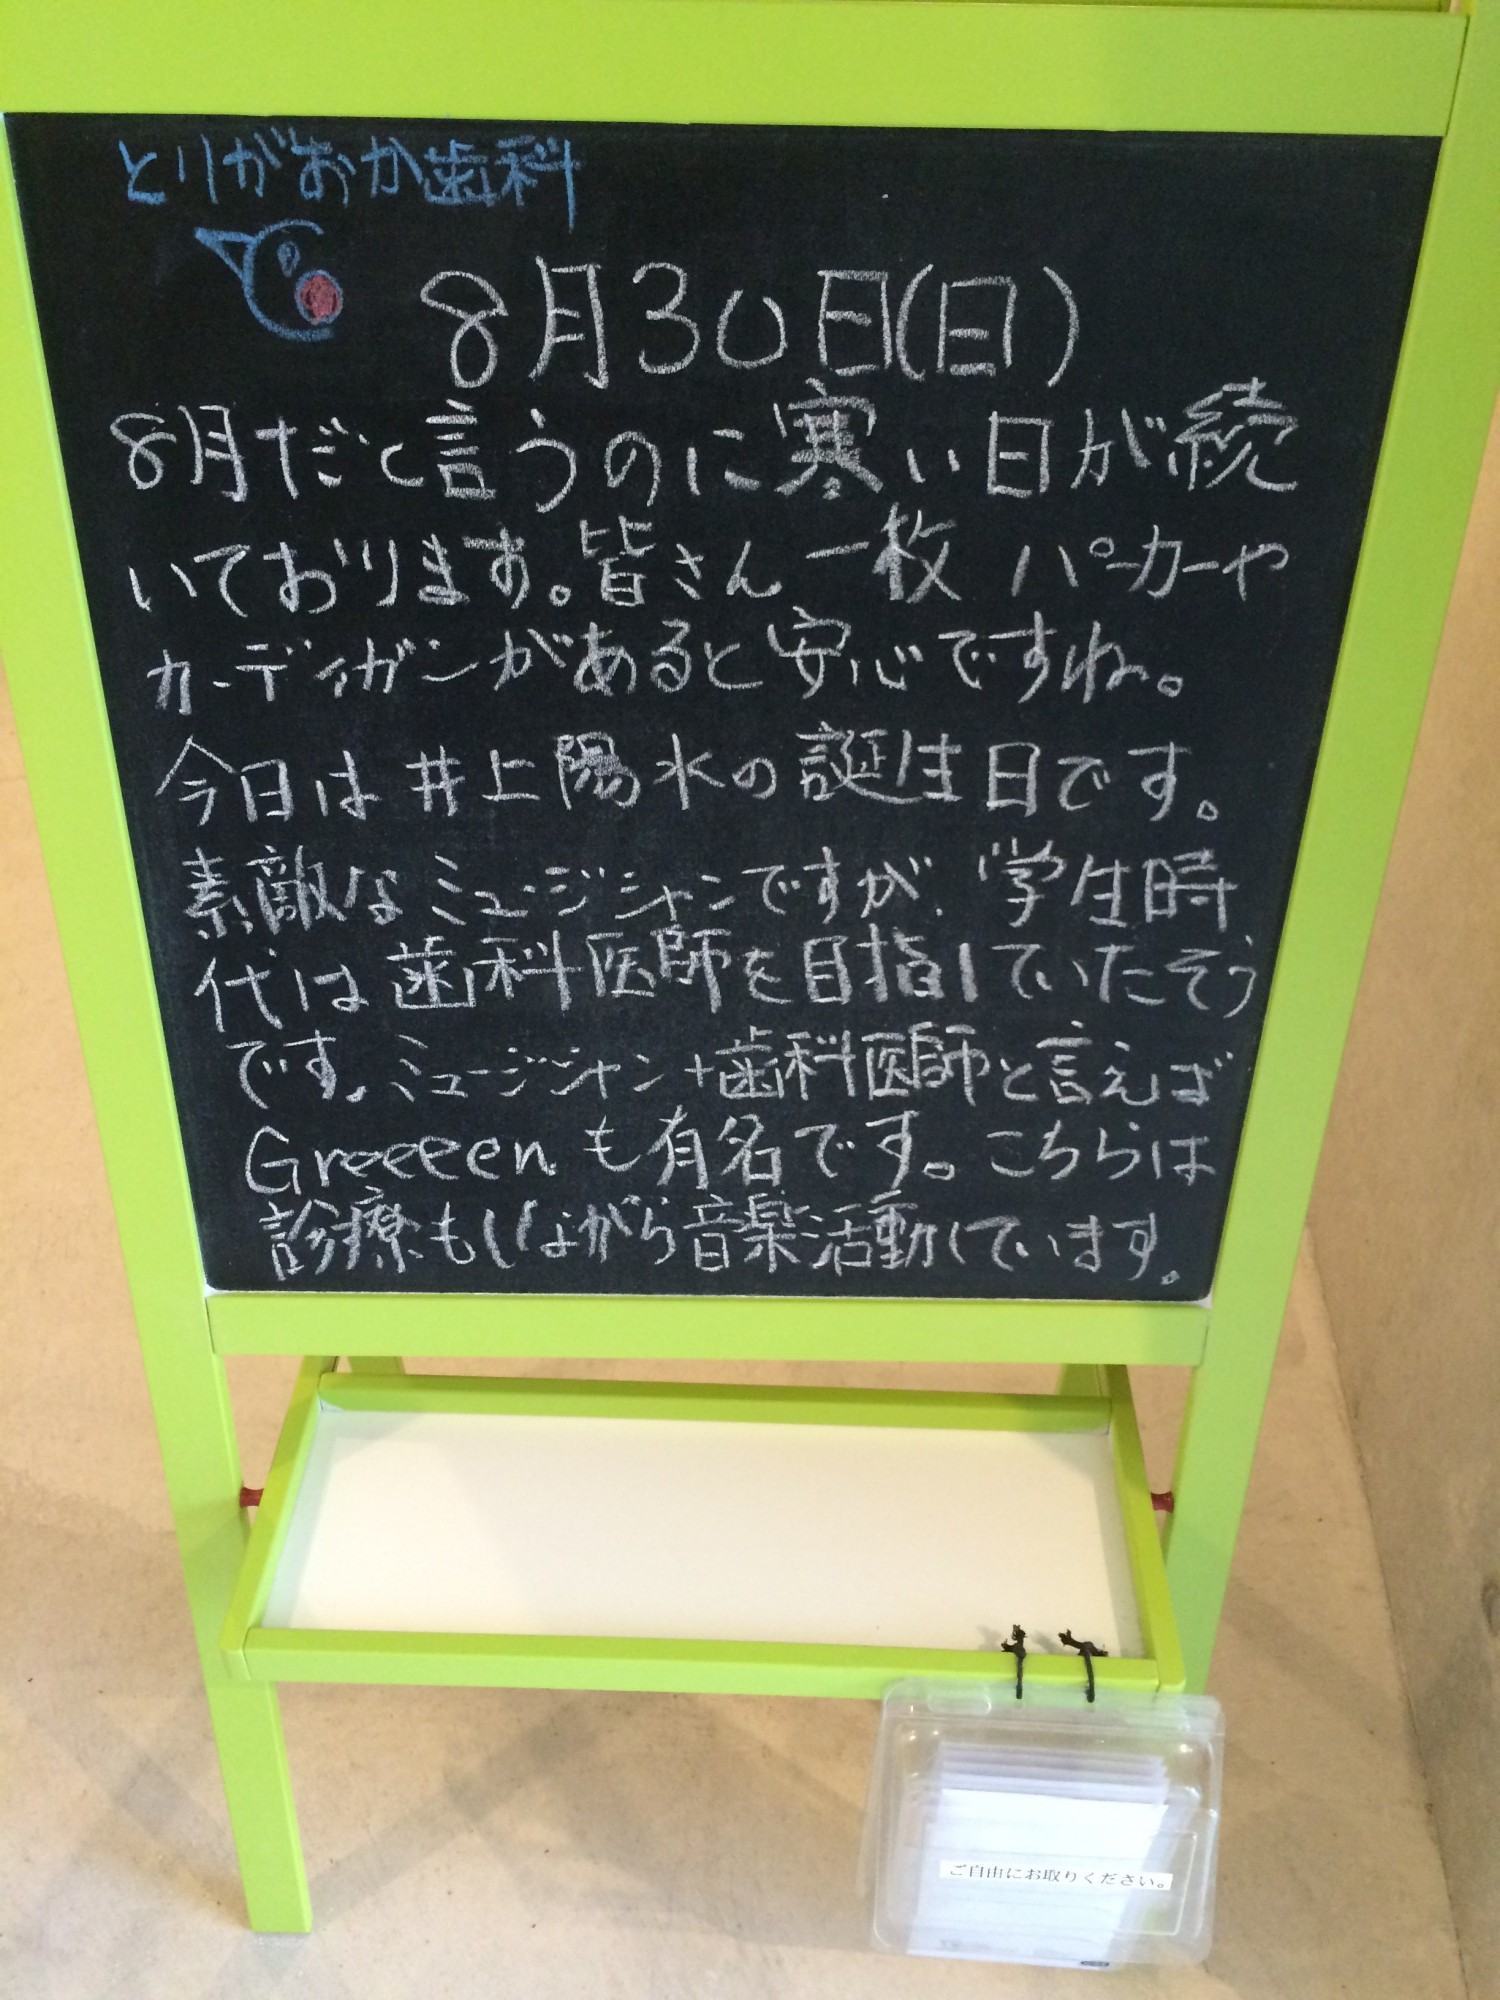 とりがおか歯科
8月30日(日)
8月だと言うのに寒い日が続
いております。皆さん一枚パーカーや
カーディガンがあると安心ですね。
今日は井上陽水の誕生日です。
素敵なミュージシャンですが、学生時
代は歯科医師を目指していたそう
です。ミュージシャン+歯科医師と言えば
Greeeenも有名です。こちらは
診療もしながら音楽活動しています。
ご自由にお取りください。